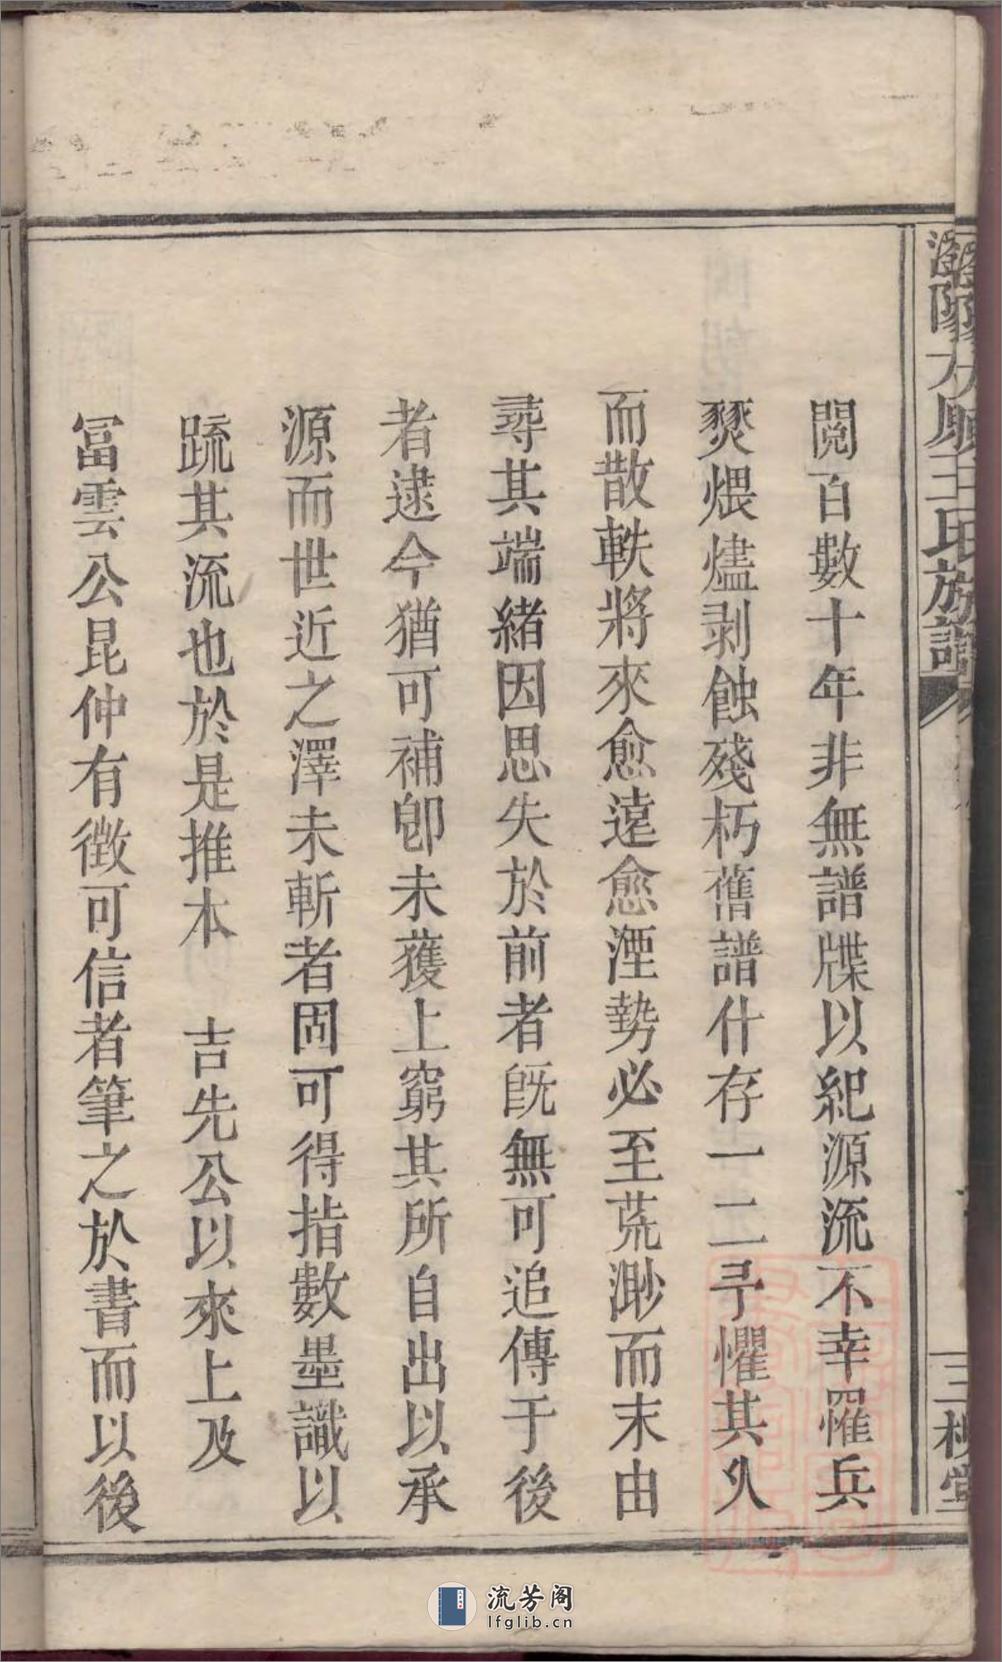 閱百數十年非無譜牒以紀源流不幸罹兵
燹煨燼剥蝕殘朽舊譜什存一二予懼其久
而散軼將來愈遠愈湮勢必至荒渺而末由
尋其端緒因思失於前者既無可追傳于後
者逮今猶可補卽未獲上窮其所自出以承
源而世近之澤未斬者固可得指數墨識以
疏其流也於是推本 吉先公以來上及
冨雲公昆仲有徵可信者筆之於書而以後
王氏族譜
三槐堂
流芳阁
lfglib.cn